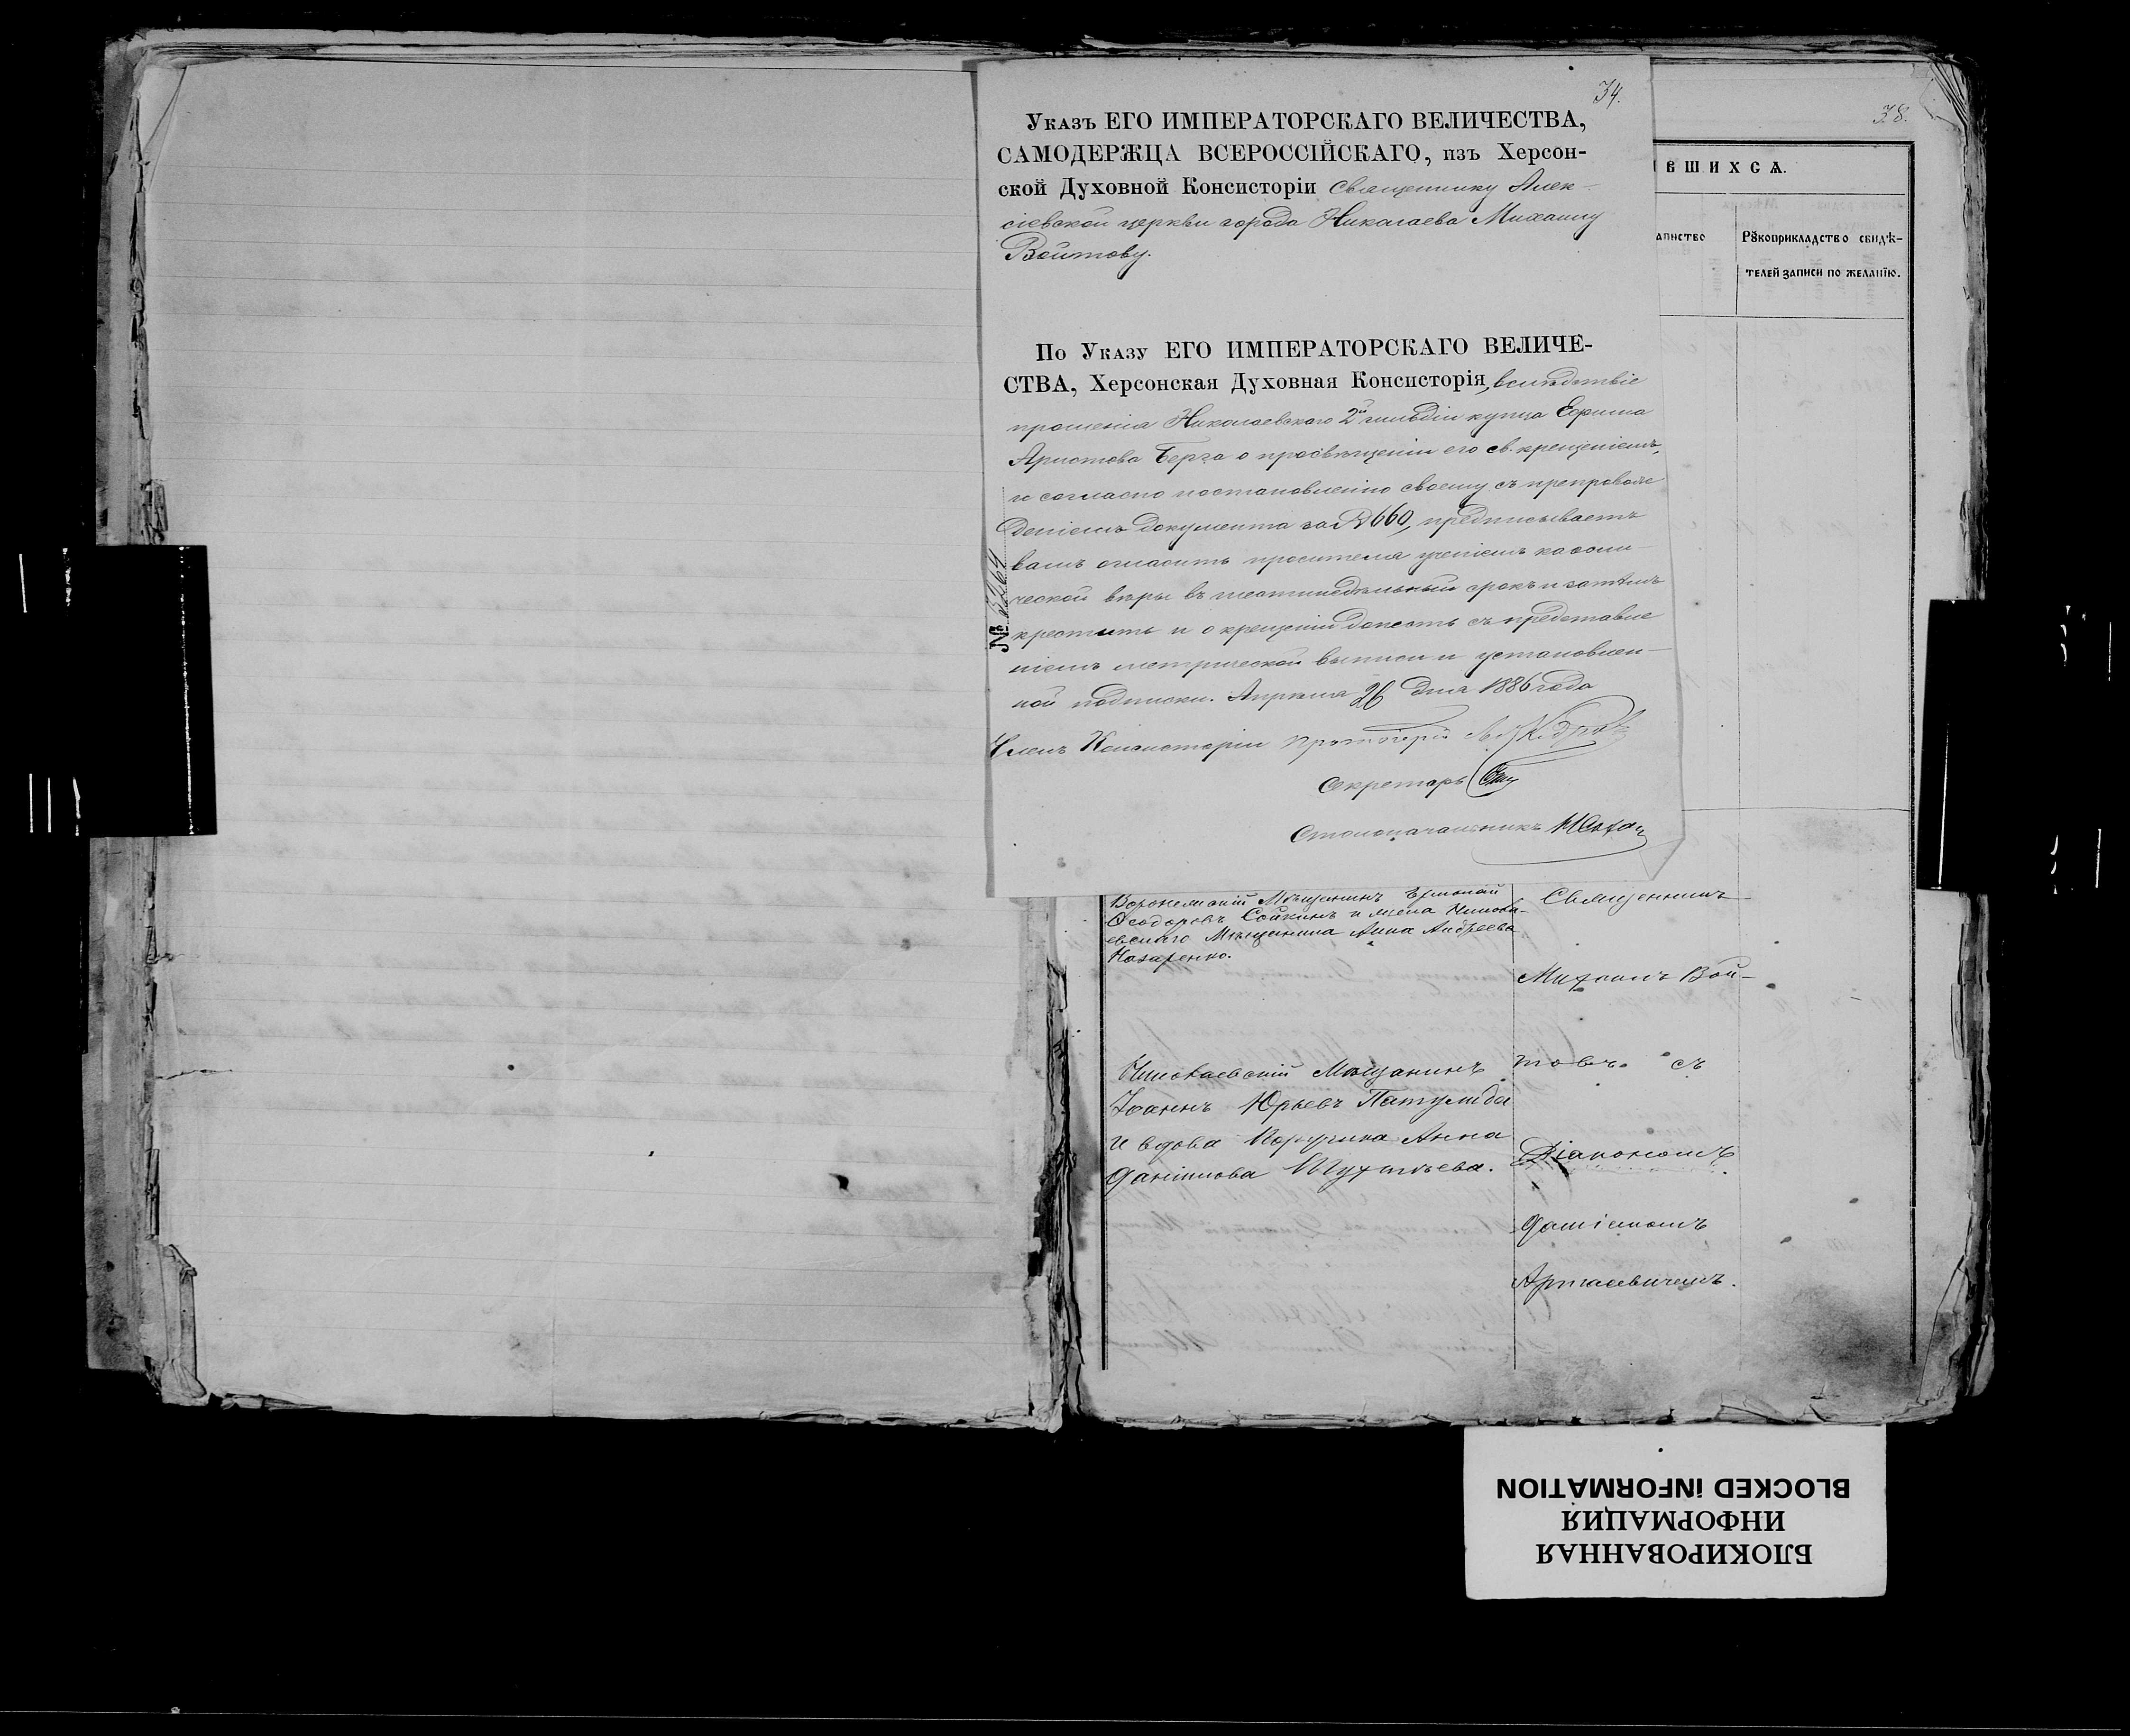 34.
Указъ ЕГО ИМПЕРАТОРСКАГО ВЕЛИЧЕСТВА,
САМОДЕРЖЦА ВСЕРОССІЙСКАГО, изъ Херсон-
ской Духовной Консисторіи Священнику Алек-
сіевской церкви города Николаева Михаилу
Войтову.
По Указу ЕГО ИМПЕРАТОРСКАГО ВЕЛИЧЕ-
СТВА, Херсонская Духовная Консисторія, вслѣдствіе
прошенія Николаевскаго 2й гильдіи купца Ефима
Аристова Берга о просвѣщеніи его св. крещеніемъ,
и согласно постановленію своему, съ препровож
деніемъ документа за № 660, предписываетъ
вамъ огласить просителя ученіемъ каѳоли-
ческой вѣры въ шестинедѣльный срокъ и затѣмъ
крестить и о крещеніи донесть съ представле
ніемъ метрической выписи и установлен-
ной подписки. Апрѣля 26 дня 1886 года
Членъ Консисторіи Протоіерей
Секретарь
Столоначальникъ
№ 5264
38.
ВШИХСѦ.
Рꙋкоприкладство свидѣ-
телей записи по желанію.
Мѣщанинъ
Ѳеодоровъ Сойкинъ и жена Никола-
евскаго Мѣщанина Анна Андреева
Назаренко.
Николаевскій Мѣщанинъ
Іоаннъ Юрьевъ
и вдова Поручика Анна
Даніилова
Священникъ
Михаилъ Вой-
товъ съ
Діакономъ
БЛОКИРОВАННАЯ
ИНФОРМАЦИЯ
BLOCKED INFORMATION